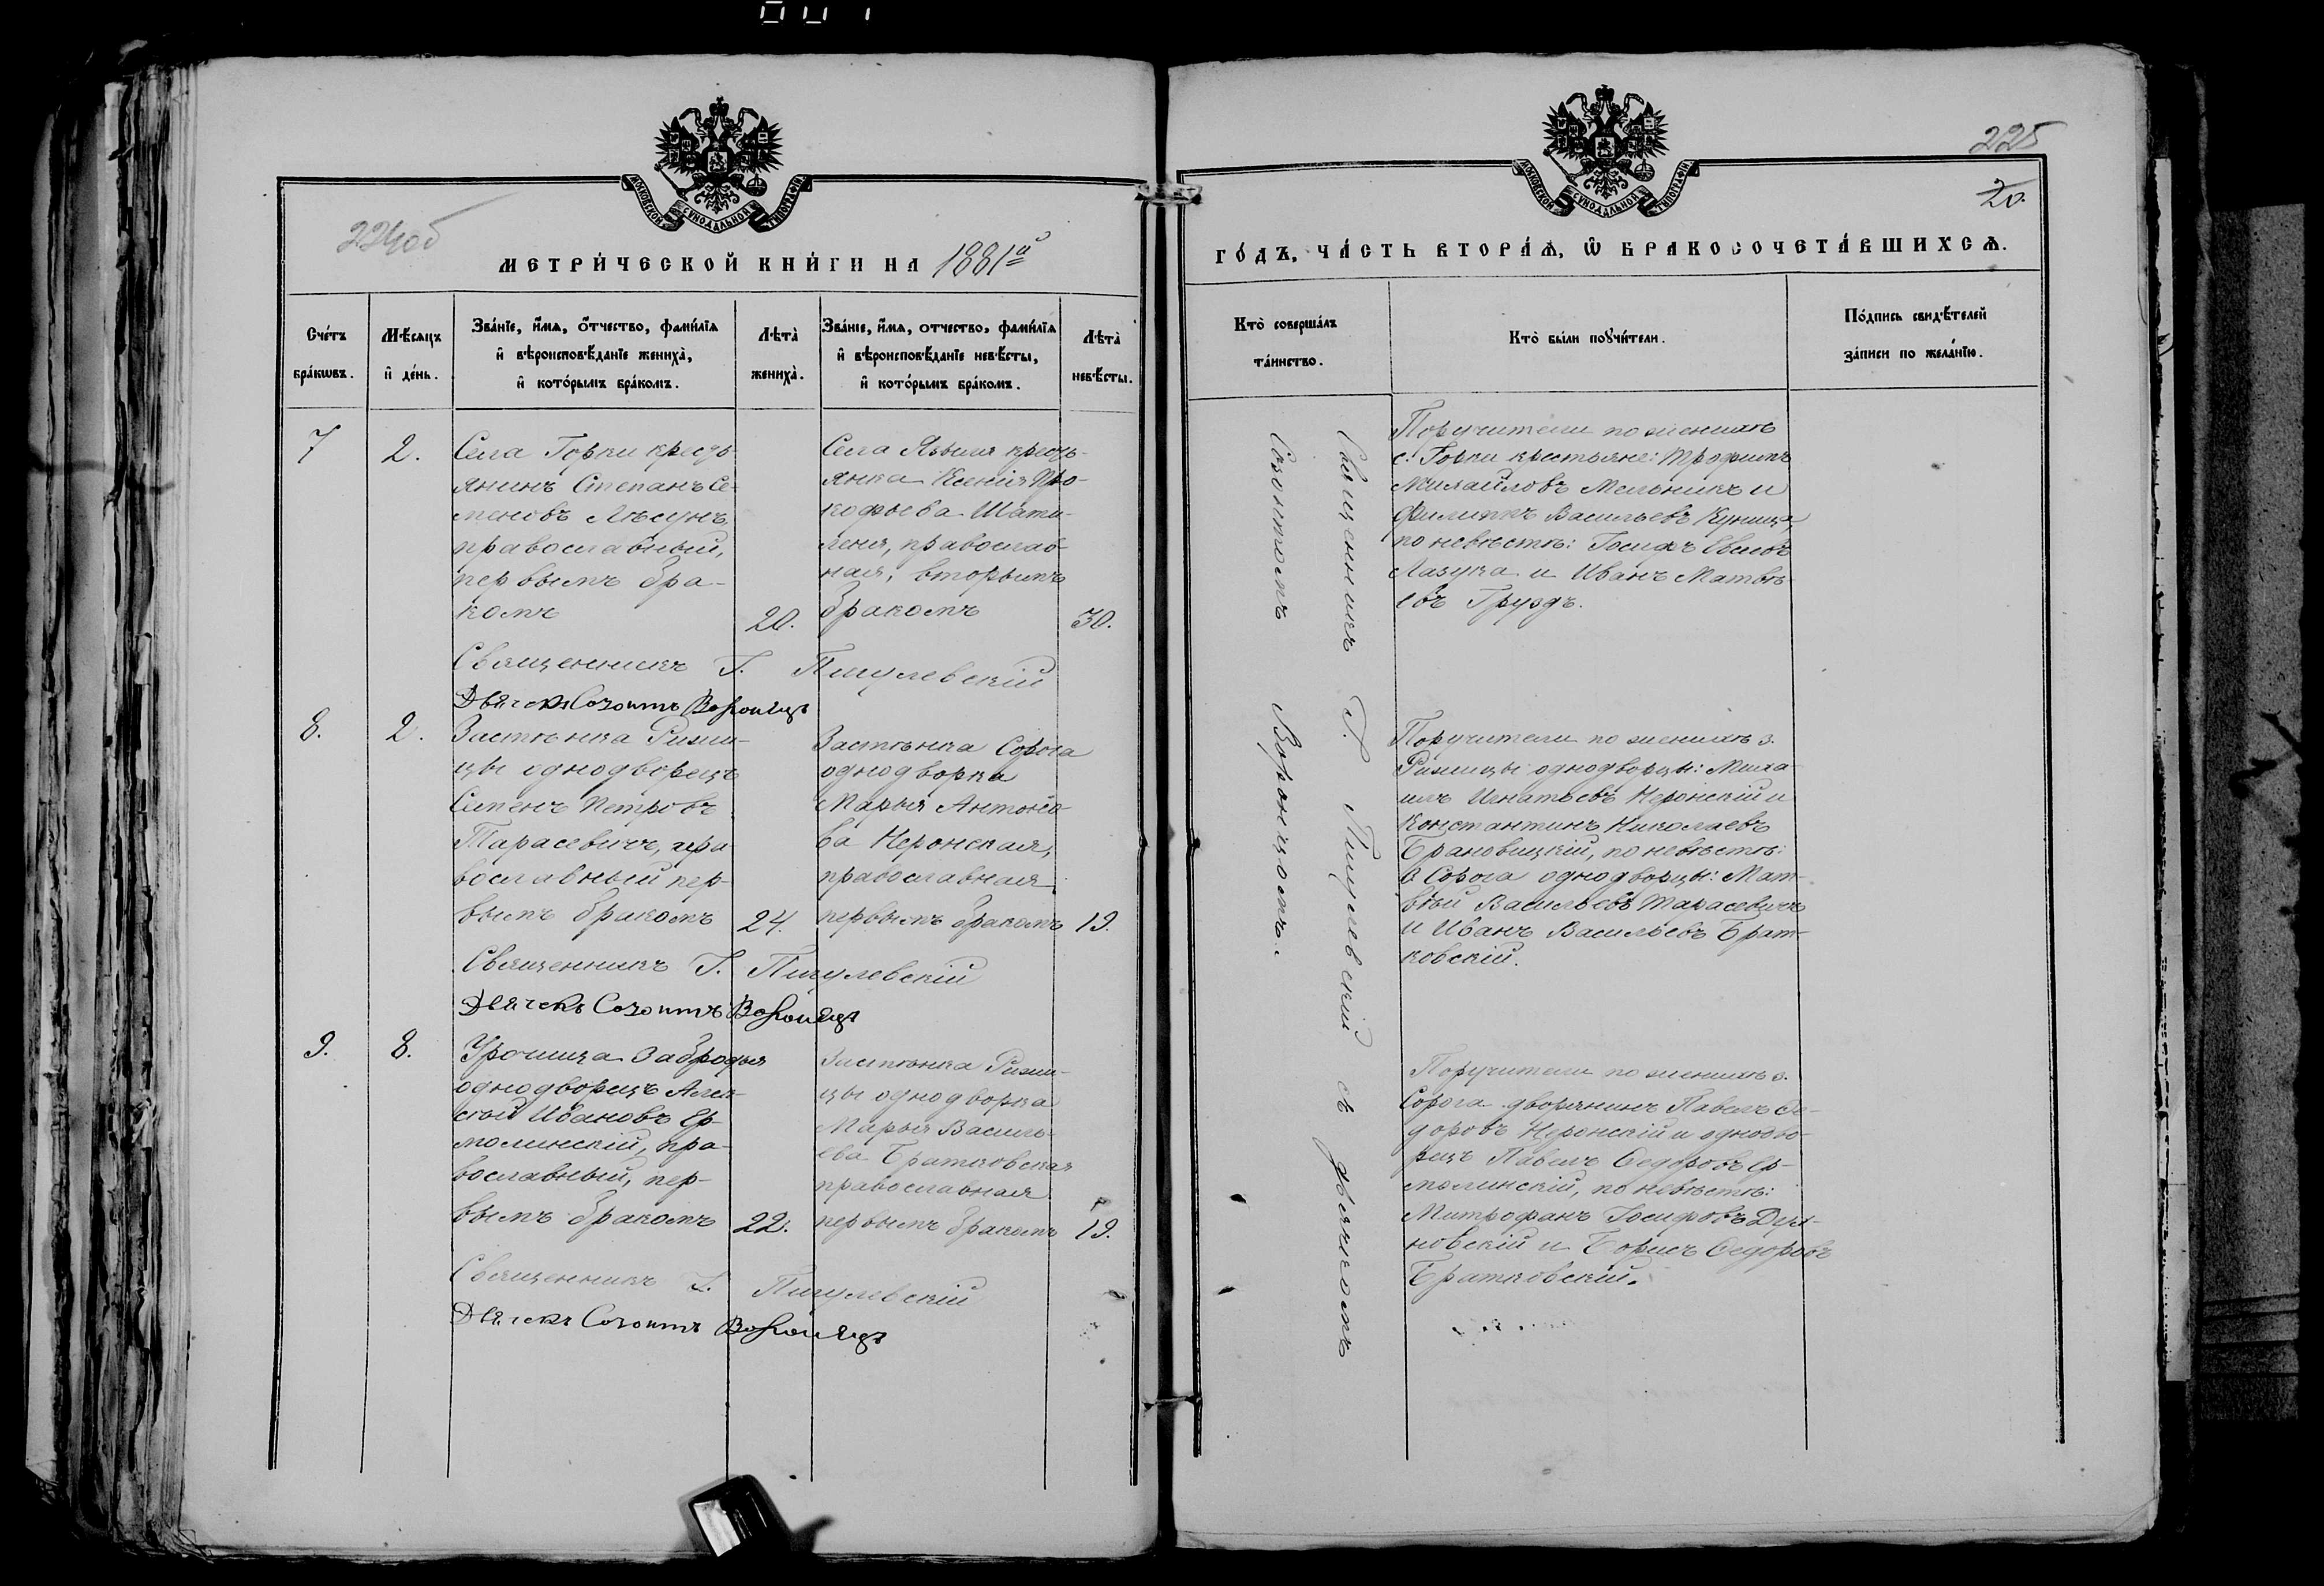 224об
МЕТРИЧЕСКОЙ КНИГИ НА 1881й
Счетъ браковъ.
Мѣсяцъ и день.
Званіе, имя, отчество, фамилія и вѣроисповѣданіе жениха, и которымъ бракомъ.
Лѣта жениха.
Званіе, имя, отчество, фамилія и вѣроисповѣданіе невѣсты, и которымъ бракомъ.
Лѣта невѣсты.
7
2.
Села Горки кресть-
янинъ Степанъ Се-
меновъ Лѣсунъ,
православный,
первымъ бра-
комъ
20.
Села Язвыля кресть-
янка Ксенія Про-
кофьева Шати-
леня, православ-
ная, вторымъ
бракомъ
30.
Священникъ Г. Пигулевскій
Дьячекъ Созонтъ Воронецъ
8.
2.
Застѣнка Рижи-
цы однодворецъ
Семенъ Петровъ
Тарасевичъ, пра-
вославный пер-
вымъ бракомъ
24.
Застѣнка Сорога
однодворка
Марья Антоно-
ва Неронская,
православная
первымъ бракомъ
19.
Священникъ Г. Пигулевскій
Дьячекъ Созонтъ Воронецъ
9.
8.
Урочища Забродья
однодворецъ Алек-
сѣй Ивановъ Ер-
молинскій, пра-
вославный, пер-
вымъ бракомъ
22.
Застѣнка Рижи-
цы однодворка
Марья Василь-
ева Братковская
православная
первымъ бракомъ
19.
Священникъ Г. Пигулевскій
Дьячекъ Созонтъ Воронецъ
225
20.
ГОДЪ, ЧАСТЬ ВТОРАЯ, Ѡ БРАКОСОЧЕТАВШИХСЯ.
Кто совершалъ таинство.
Кто были поручители.
Подпись свидѣтелей записи по желанію.
Священникъ Г. Пигулевскій съ дьячкомъ
Созонтомъ Воронцомъ.
Поручители по женихѣ
с. Горки крестьяне: Трофимъ
Михайловъ Мельникъ и
Филиппъ Васильевъ Куница
по невѣстѣ: Іосифъ
Лазука и Иванъ Матвѣ-
евъ Груздъ.
Поручители по женихѣ з.
Рижицы однодворцы: Миха-
илъ Игнатьевъ Неронскій и
Константинъ Николаевъ
Брановицкій, по невѣстѣ:
з Сорога однодворцы: Мат-
вѣй Васильевъ Тарасевичъ
и Иванъ Васильевъ Брат-
ковскій.
Поручители по женихѣ з.
Сорога дворянинъ Павелъ Ѳе-
доровъ Неронскій и однодво-
рецъ Павелъ Ѳедоровъ Ер-
молинскій, по невѣстѣ:
Митрофанъ Іосифовъ
и Борисъ Ѳедоровъ
Братковскій.